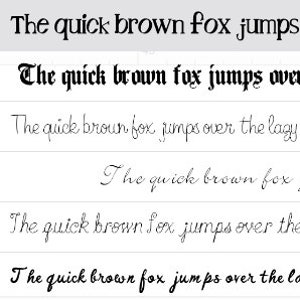 The quick brown fox jumps
The quick brown fox jumps over
The quick brown fox jumps over the lazy
The quick brown fox
The quick brown fox jumps over the
The quick brown fox jumps over the